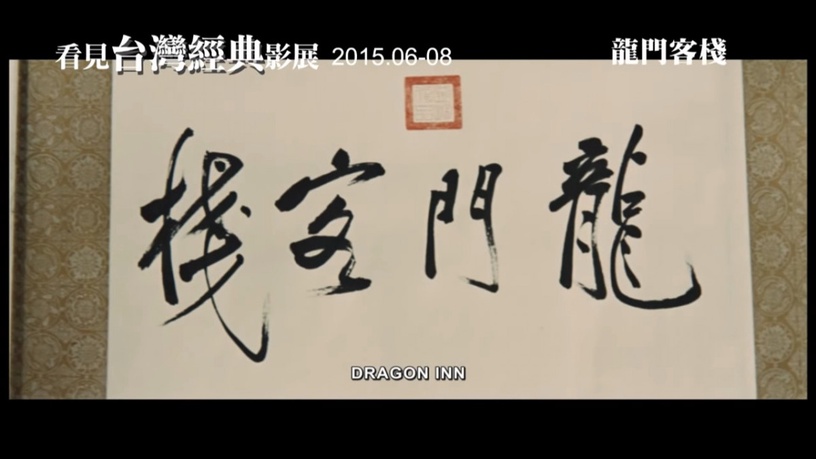 看見台灣經典影展 2015.06-08
龍門客棧
龍門客棧
DRAGON INN